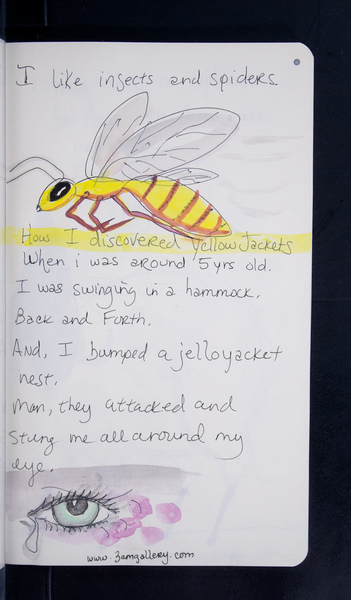 I like insects and spiders.
How I discovered yellow Jackets
When i was around 5 yrs old.
I was swinging in a hammock,
Back and Forth.
And, I bumped a jelloyacket
nest,
man, they attacked and
Stung me all around my
eye.
www.3amgallery.com